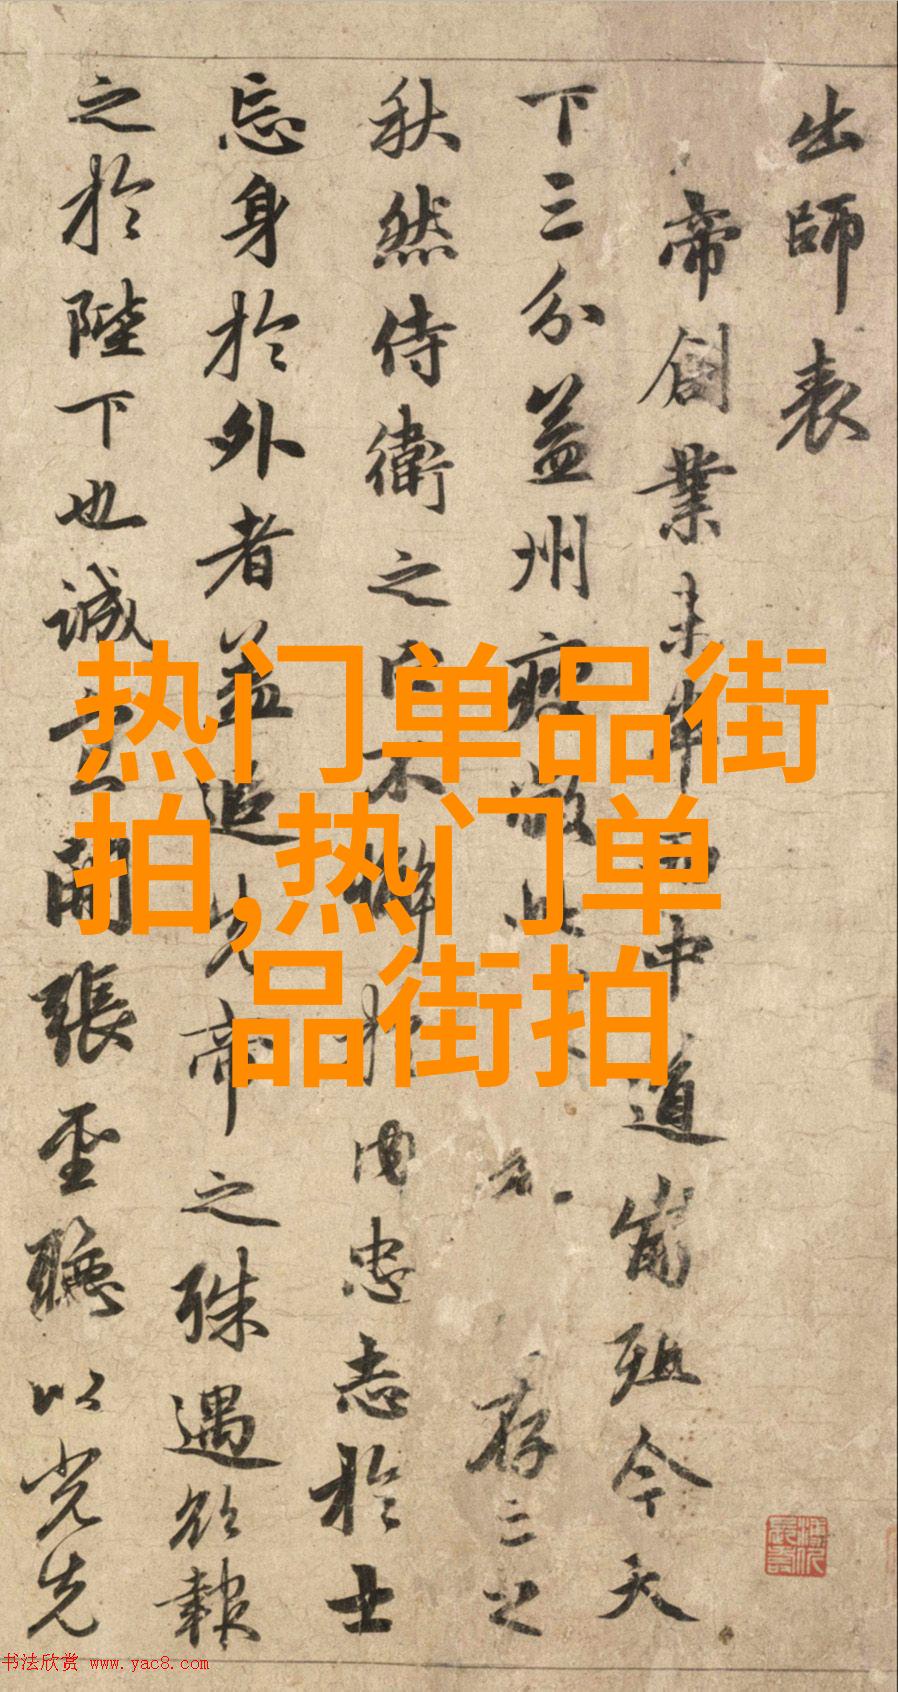 出師表
帝創業未半而中道崩殂今天
下三分益州疲敝此存亡之
秋然侍衛之臣不懈於内忠志於士
忘身於外者益追先帝之殊遇欲報
之於陛下也誠宜開張聖聽以光先
热门单品街
拍,热门单
品街拍
书法欣赏 www.yac8.com